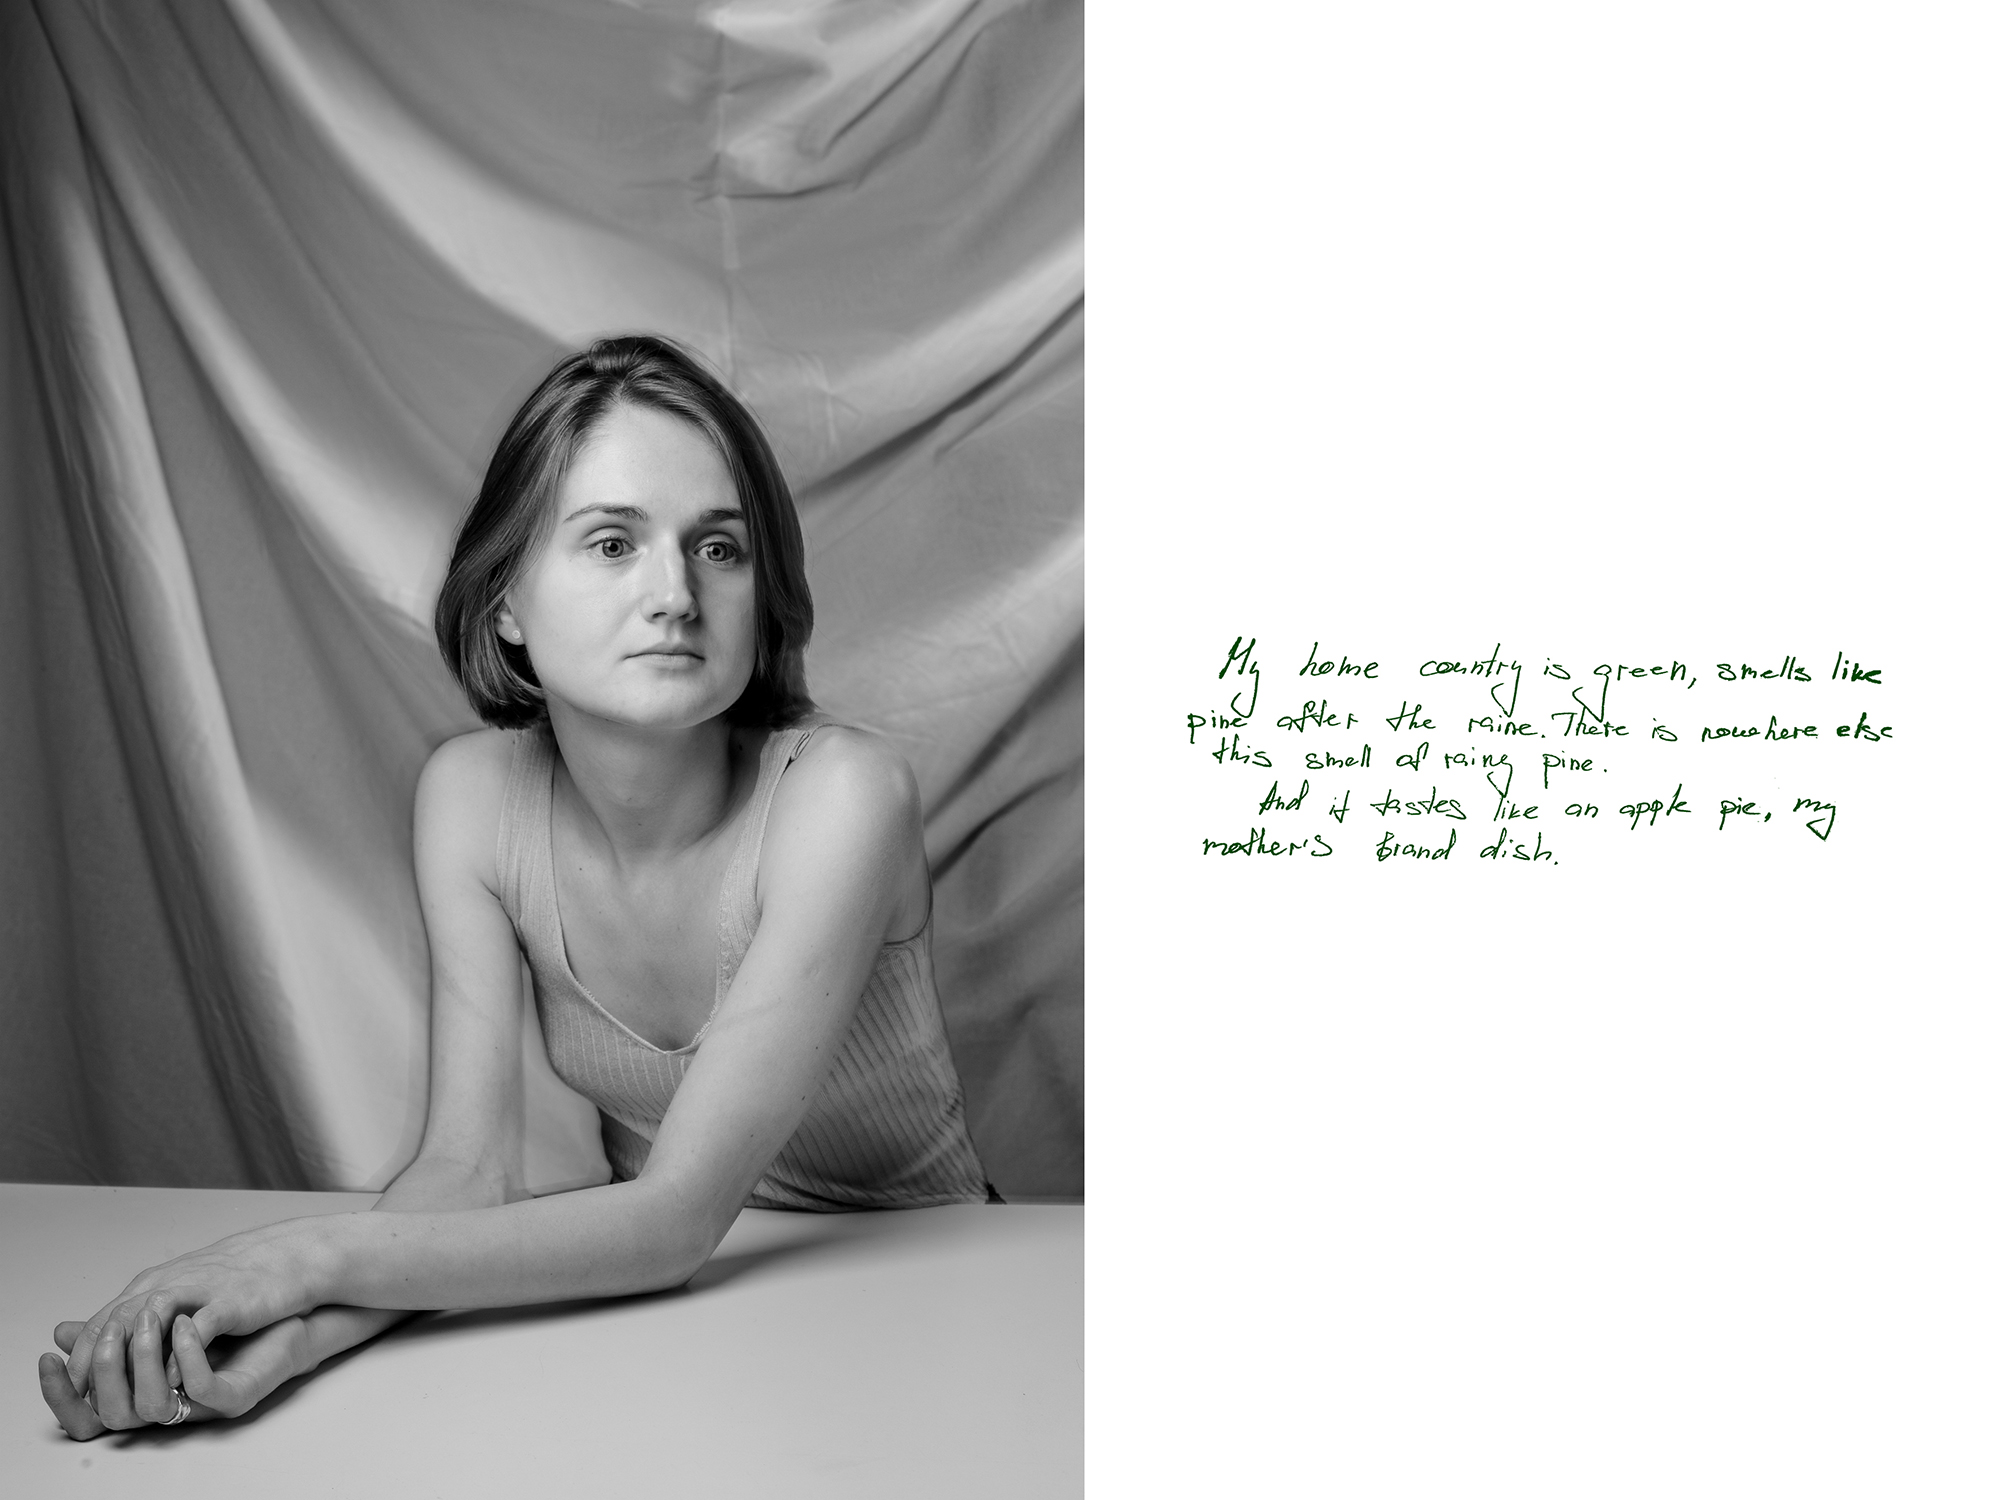 My home country is green, smells like
pine after the raine. There is nowhere else
this smell of rainy pine.
And it tastes like an apple pie, my
mother's brand dish.